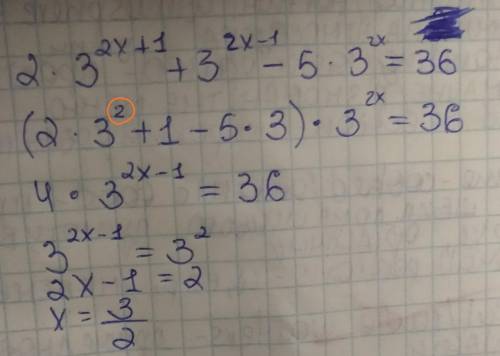 2 · 3^{2x+1} + 3^{2x-1} - 5 · 3^{2x} = 36
(2 · 3^{2} + 1 - 5 · 3) · 3^{2x} = 36
4 · 3^{2x-1} = 36
3^{2x-1} = 3^{2}
2x - 1 = 2
x = \frac{3}{2}